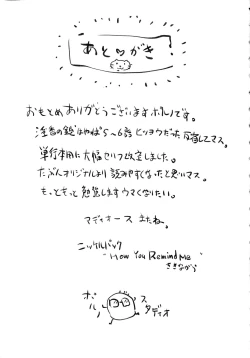 あと♡がき
おもとめありがとうございますホルノです。
注番の鏡はやっぱ5〜6話ヒツヨウだった 反省してマス。
単行本用に大幅セリフ改定しました。
たぶんオリジナルより読みやすくなったと思いマス。
もっともっと勉強しますウマくなりたい。
マディオース またね。
ニッケルバック
"How You Remind Me"
ききながら
ホルノスタディオ